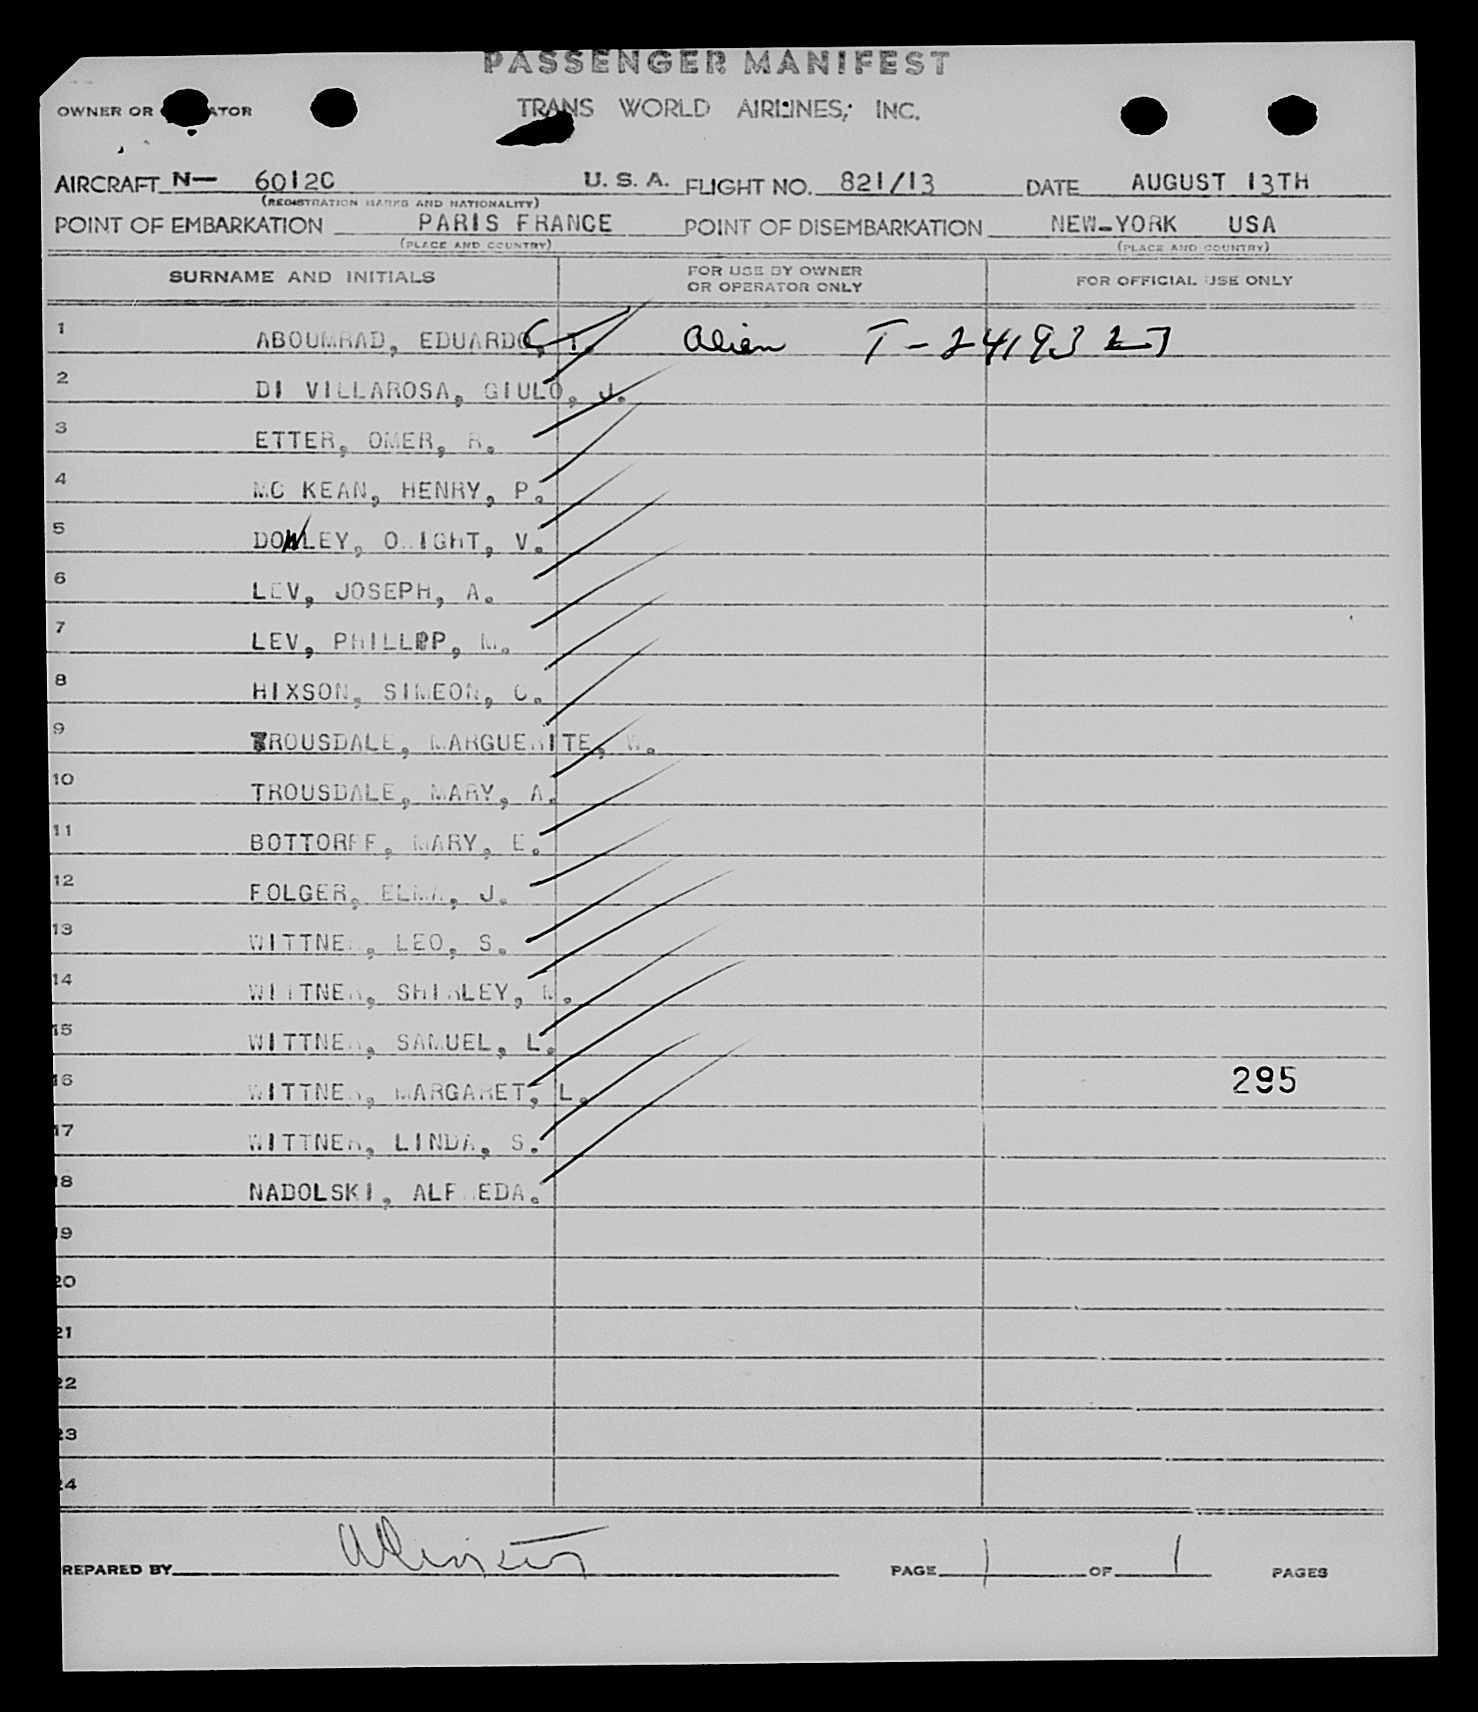 PASSENGER MANIFEST
OWNER OR TRANS WORLD AIRLINES, INC.
AIRCRAFT N— 6012C U. S. A. FLIGHT NO. 821/13 DATE AUGUST 13TH
(REGISTRATION MARKS AND NATIONALITY)
POINT OF EMBARKATION PARIS FRANCE POINT OF DISEMBARKATION NEW-YORK USA
(PLACE AND COUNTRY) (PLACE AND COUNTRY)
SURNAME AND INITIALS FOR USE BY OWNER OR OPERATOR ONLY FOR OFFICIAL USE ONLY
1 ABOUMRAD, EDUARDO, T. Alien T-2419327
2 DI VILLAROSA, GIULO, J.
3 ETTER, OMER, R.
4 MC KEAN, HENRY, P.
5 DOWLEY, V.
6 LEV, JOSEPH, A.
7 LEV, PHILLIP, M.
8 HIXSON, SIMEON, C.
9 TROUSDALE, MARGUERITE, W.
10 TROUSDALE, MARY, A.
11 BOTTORFF, MARY, E.
12 FOLGER, ELMA, J.
13 WITTNER, LEO, S.
14 WITTNER, SHIRLEY, M.
15 WITTNER, SAMUEL, L.
16 WITTNER, MARGARET, L. 295
17 WITTNER, LINDA, S.
18 NADOLSKI, ALFREDA.
19
20
21
22
23
24
PREPARED BY PAGE 1 OF 1 PAGES